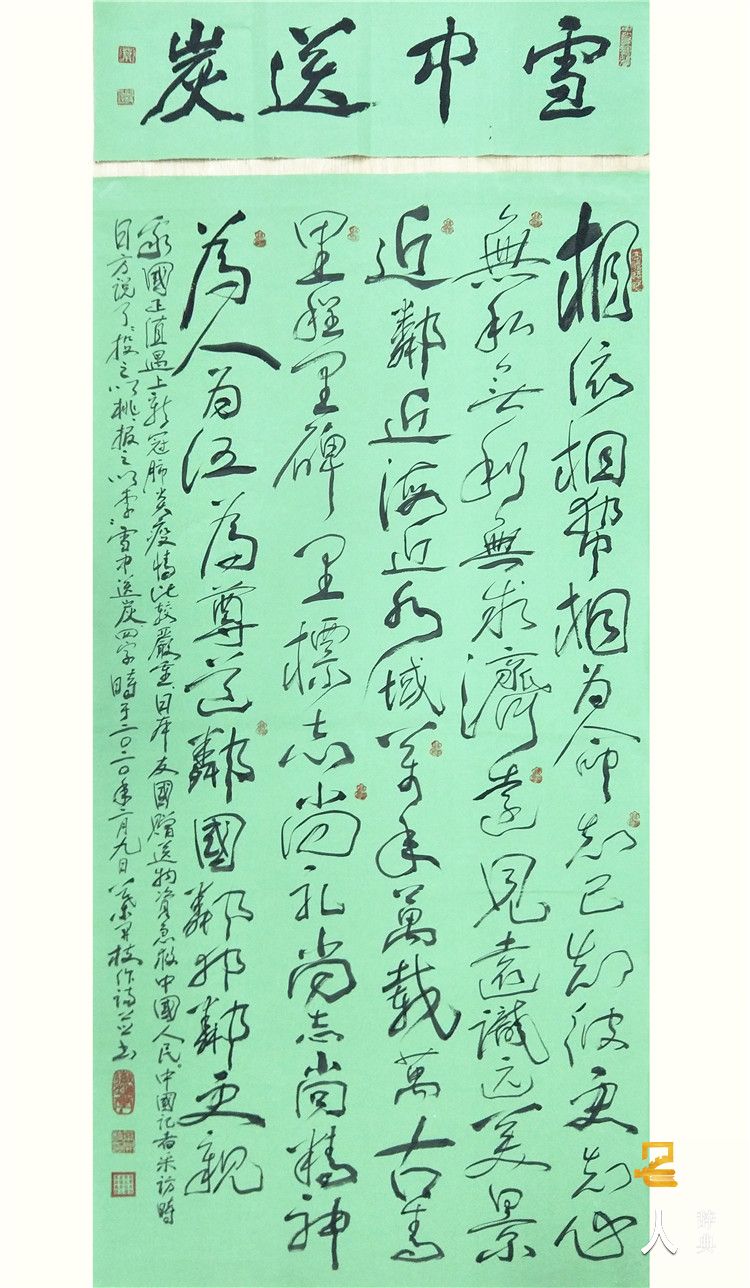 雪中送炭
相依相帮相为命知己知彼更知心
無私无利無求濟遠見遠識远美景
近鄰近海近水域万年萬載萬古青
里程里碑里標志尚礼尚志尚精神
為人为伍為尊鄰國鄰邦鄰更親
國正值遇上新冠肺炎疫情比较嚴重日本友國贈送物資急救中國人民。中國记者采访時
日方说了、投之以桃报之以李、雪中送炭四字時于二〇二〇年二月九日作詩並书
人
辞典